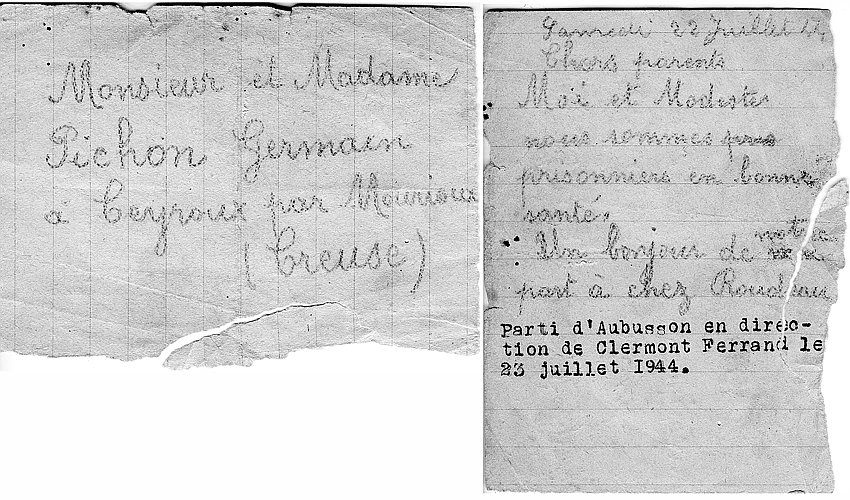 Monsieur et Madame
Pichon Germain
à Ceyroux par Mourioux
(Creuse)
Samedi 22 Juillet 44
Chers parents
Moi et Modeste
nous sommes
prisonniers en bonne
santé.
Un bonjour de notre
part à chez Roudeau
Parti d'Aubusson en direc-
tion de Clermont Ferrand le
23 juillet 1944.